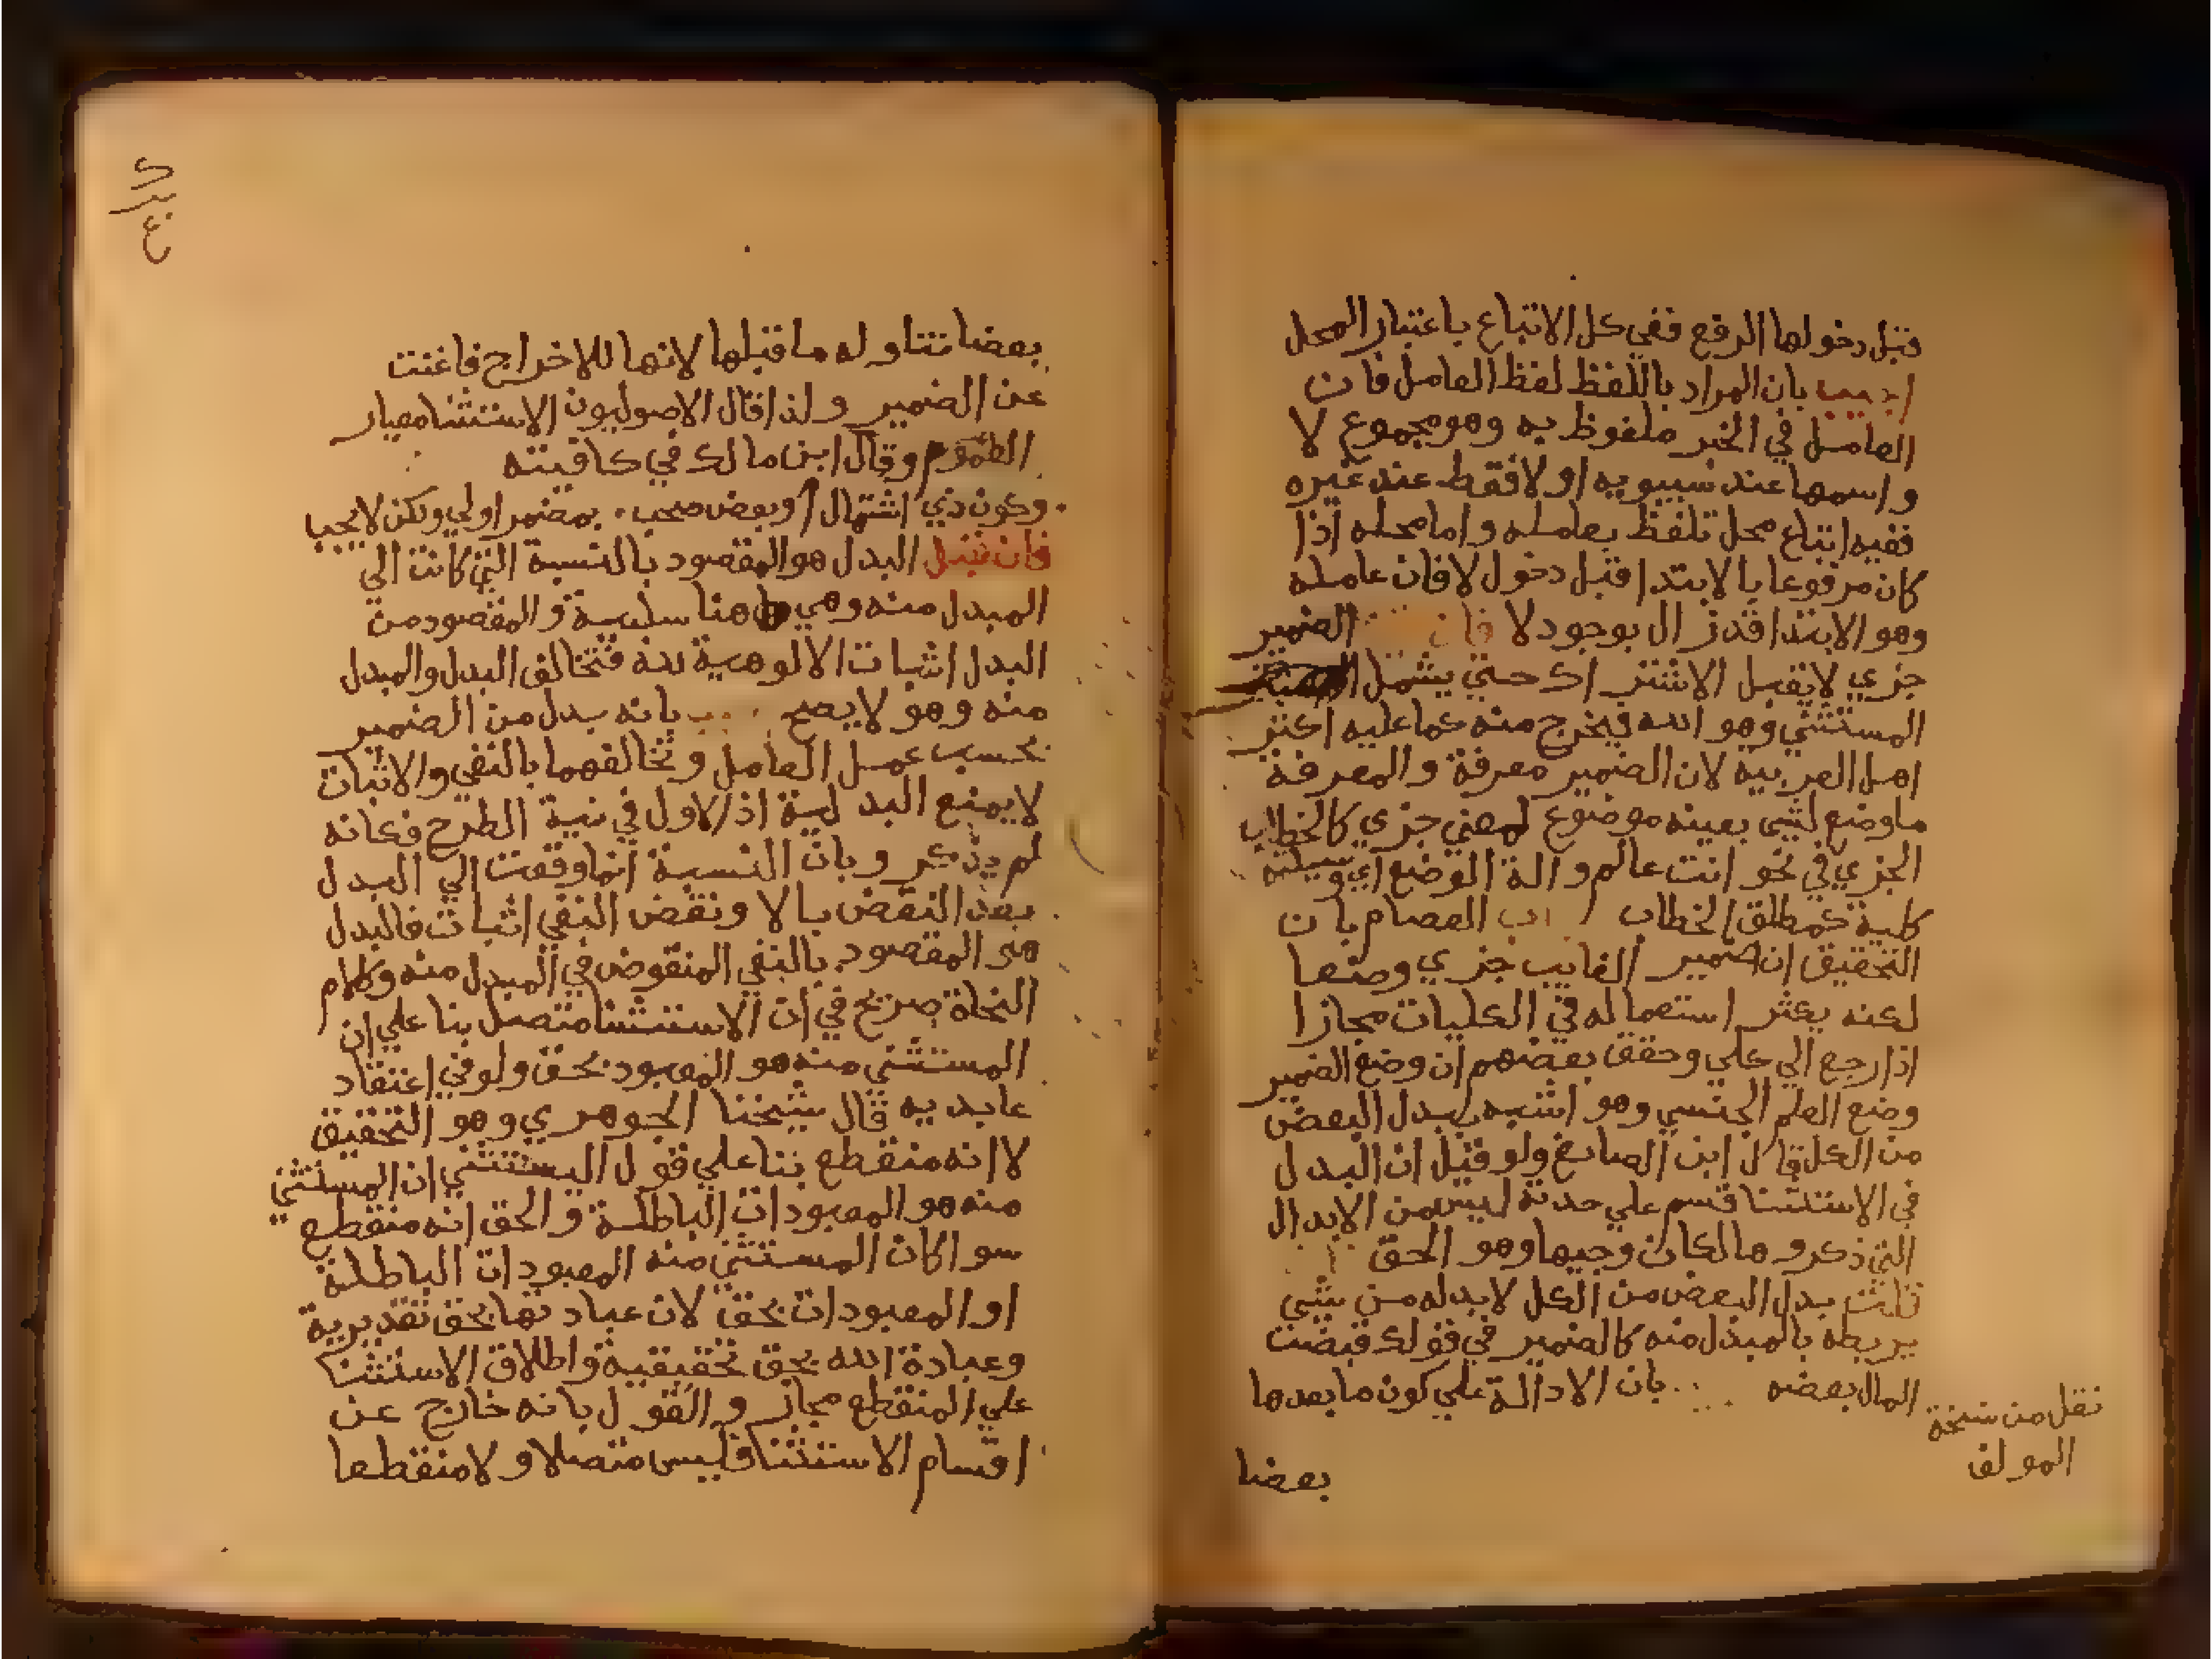 قبل دخولها الرفع ففي كل الاتباع باعتبار المحل
اجيب بان المراد باللفظ لفظ العامل فان
العامل في الخبر ملفوظ به وهو مجموع لا
واسمها عند سيبويه او لا فقط عند غيره
ففيه اتباع محل تلفظ بعامله واما محله اذا
كان مرفوعا بالابتدا قبل دخول لا فان عامله
وهو الابتدا قد زال بوجود لا فان الضمير
جزي لا يقبل الاشتراك حتي يشمل
المستثني وهو الله فيخرج منه كما عليه اكثر
اهل العربيه لان الضمير معرفة والمعرفة
ما وضع لشي بعينه موضوع لمعني جزي كالخطاب
الجزي في نحو انت عالم والة الوضع اي وسيلته
كلية كمطلق الخطاب العصام بان
التحقيق ان ضمير الغايب جزي وضعا
لكنه يكثر استعماله في الكليات مجازا
اذا رجع الي علي وحقق بعضهم ان وضع الضمير
وضع العلم الجنسي وهو اشبه ببدل البعض
من الكل قال ابن الصايغ ولو قيل ان البدل
في الاستثنا قسم علي حدته ليس من الابدال
التي ذكروها لكان وجيها وهو الحق
قلت بدل البعض من الكل لا بد له من شي
يربطه بالمبدل منه كالضمير في قولك قبضت
المال بعضه بان الا دالة علي كون ما بعدها
بعضا
نقل من نسخة
المولف
بعضا تناوله ما قبلها لانها للاخراج فاغنت
عن الضمير ولذا قال الاصوليون الاستثنا معيار
العموم وقال ابن مالك في كافيته
وكون ذي اشتمال او بعض صحب بمضمر اولي ولكن لا يجب
فان قيل البدل هو المقصود بالنسبة التي كانت الي
المبدل منه وهي هنا سلبية والمقصود من
البدل اثبات الالوهية لله فتخالف البدل والمبدل
منه وهو لا يصح بانه بدل من الضمير
بحسب عمل العامل وتخالفهما بالنفي والاثبات
لا يمنع البدلية اذ الاول في نية الطرح فكانه
لم يذكر وبان النسبة انما وقعت الي البدل
بعد النقض بالا ونقض النفي اثبات فالبدل
هو المقصود بالنفي المنقوض في المبدل منه وكلام
النحاة صريح في ان الاستثنا متصل بنا علي ان
المستثني منه هو المعبود بحق ولو في اعتقاد
عابديه قال شيخنا الجوهري وهو التحقيق
لا انه منقطع بنا علي قول ان المستثني
منه هو المعبودات الباطلة والحق انه منقطع
سوا كان المستثني منه المعبودات الباطلة
او المعبودات بحق لان عبادتها بحق تقديرية
وعبادة الله بحق تحقيقية واطلاق الاستثنا
علي المنقطع مجاز والقول بانه خارج عن
اقسام الاستثنا فليس متصلا ولا منقطعا